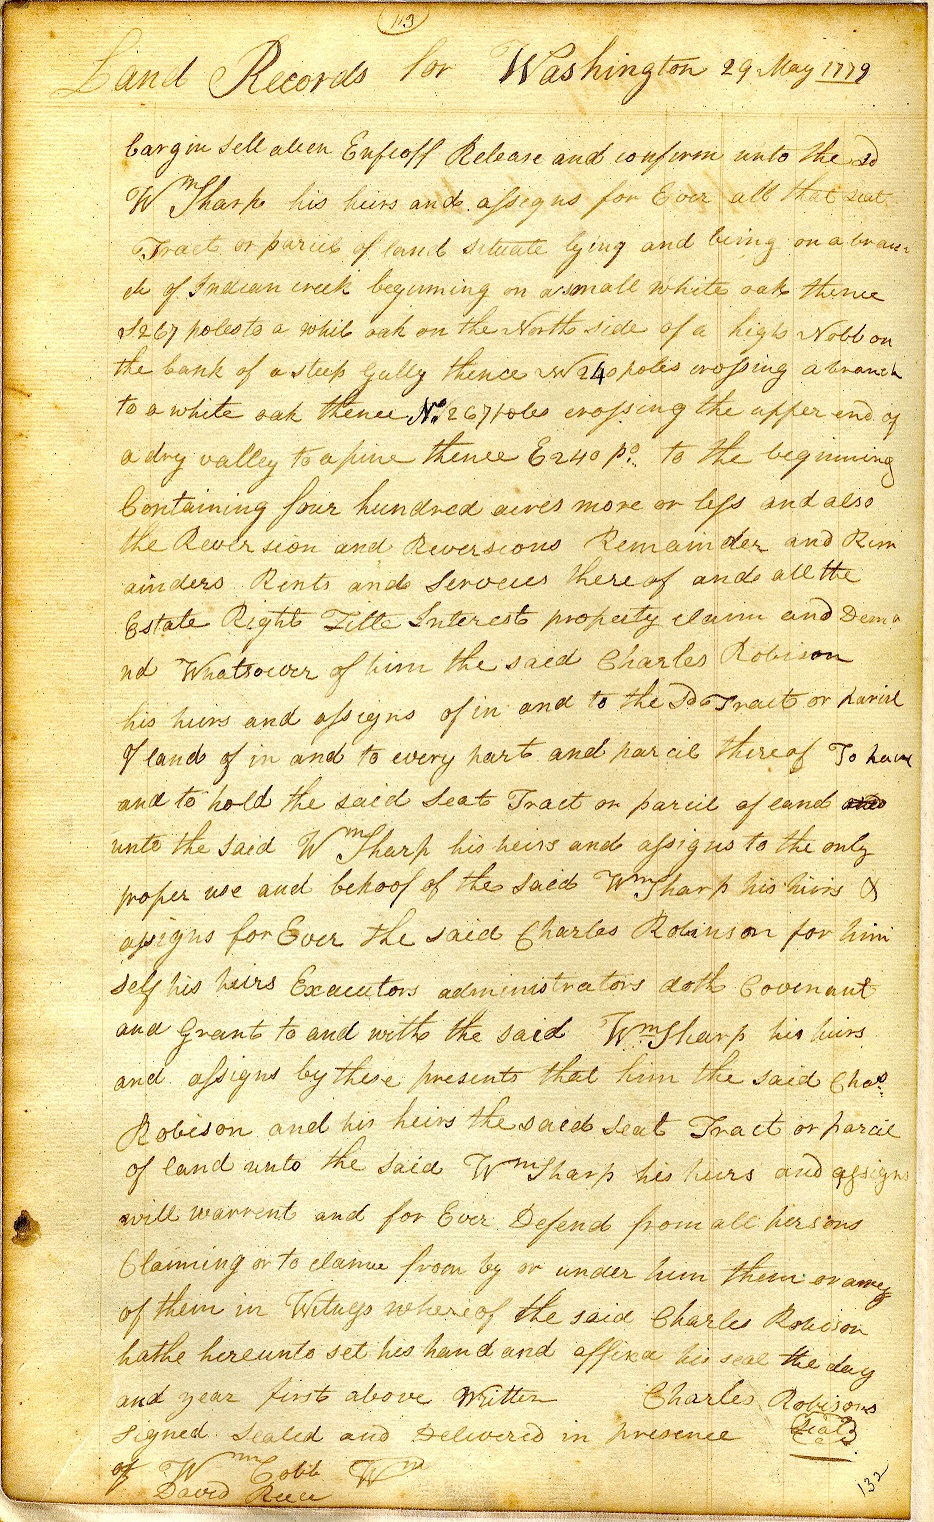 113
Land Records for Washington 29 May 1779
bargin sell alien Enfeoff Release and confirm unto the sd
Wm Sharp his heirs and assigns for Ever all that seat
Tract or parcil of land situate lying and being on a bran-
ch of Indian creek beginning on a small white oak thence
S 267 poles to a whit oak on the North side of a high Nobb on
the bank of a steep Gully thence W 240 poles crossing a branch
to a white oak thence No. 267 poles crossing the upper end of
a dry valley to a pine thence E 240 po. to the beginning
Containing four hundred acres more or less and also
the Reversion and Reversions Remainder and Rem
ainders Rents and Services there of and all the
Estate Right Title Interest property claim and Dema
nd Whatsoever of him the said Charles Robison
his heirs and assigns of in and to the Sd Tract or parcil
of land of in and to every part and parcil thereof To have
and to hold the said seat Tract or parcil of land
unto the said Wm Sharp his heirs and assigns to the only
proper use and behoof of the said Wm Sharp his heirs &
assigns for Ever the said Charles Robinson for him
self his heirs Executors administrators doth Covenant
and Grant to and with the said Wm Sharp his heirs
and assigns by these presents that him the said Chas.
Robison and his heirs the said seat Tract or parcil
of land unto the said Wm Sharp his heirs and assigns
will warrent and for Ever Defend from all persons
Claiming or to claime from by or under him them or any
of them in Witness whereof the said Charles Robison
hathe hereunto set his hand and affixd his seal the day
and year first above Written Charles Robisons
Signed Sealed and Delivered in presence Seal
of Wm Cobb Wm
David Reece
132